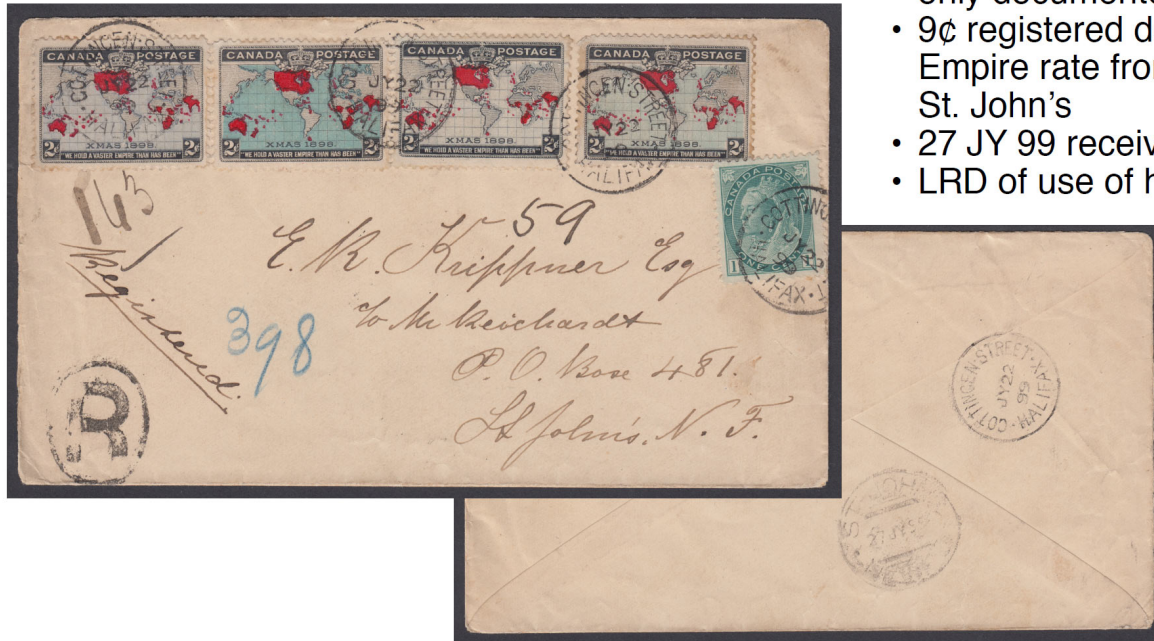 only documente
• 9¢ registered d
Empire rate from
St. John's
• 27 JY 99 receiv
• LRD of use of h
CANADA POSTAGE
XMAS 1898.
2¢ 2¢
"WE HOLD A VASTER EMPIRE THAN HAS BEEN"
CANADA POSTAGE
XMAS 1898.
2¢ 2¢
"WE HOLD A VASTER EMPIRE THAN HAS BEEN"
CANADA POSTAGE
XMAS 1898.
2¢ 2¢
"WE HOLD A VASTER EMPIRE THAN HAS BEEN"
CANADA POSTAGE
XMAS 1898.
2¢ 2¢
"WE HOLD A VASTER EMPIRE THAN HAS BEEN"
CANADA POSTAGE
1
ONE CENT
COTTINGEN·STREET
JY 22
143
Registered.
59
E. R. Krippner Esq
c/o Mr Reichardt
P. O. Box 481.
St John's. N. F.
398
R
COTTINGEN·STREET·HALIFAX
JY 22
99
ST. JOHN'S
27 JY 99